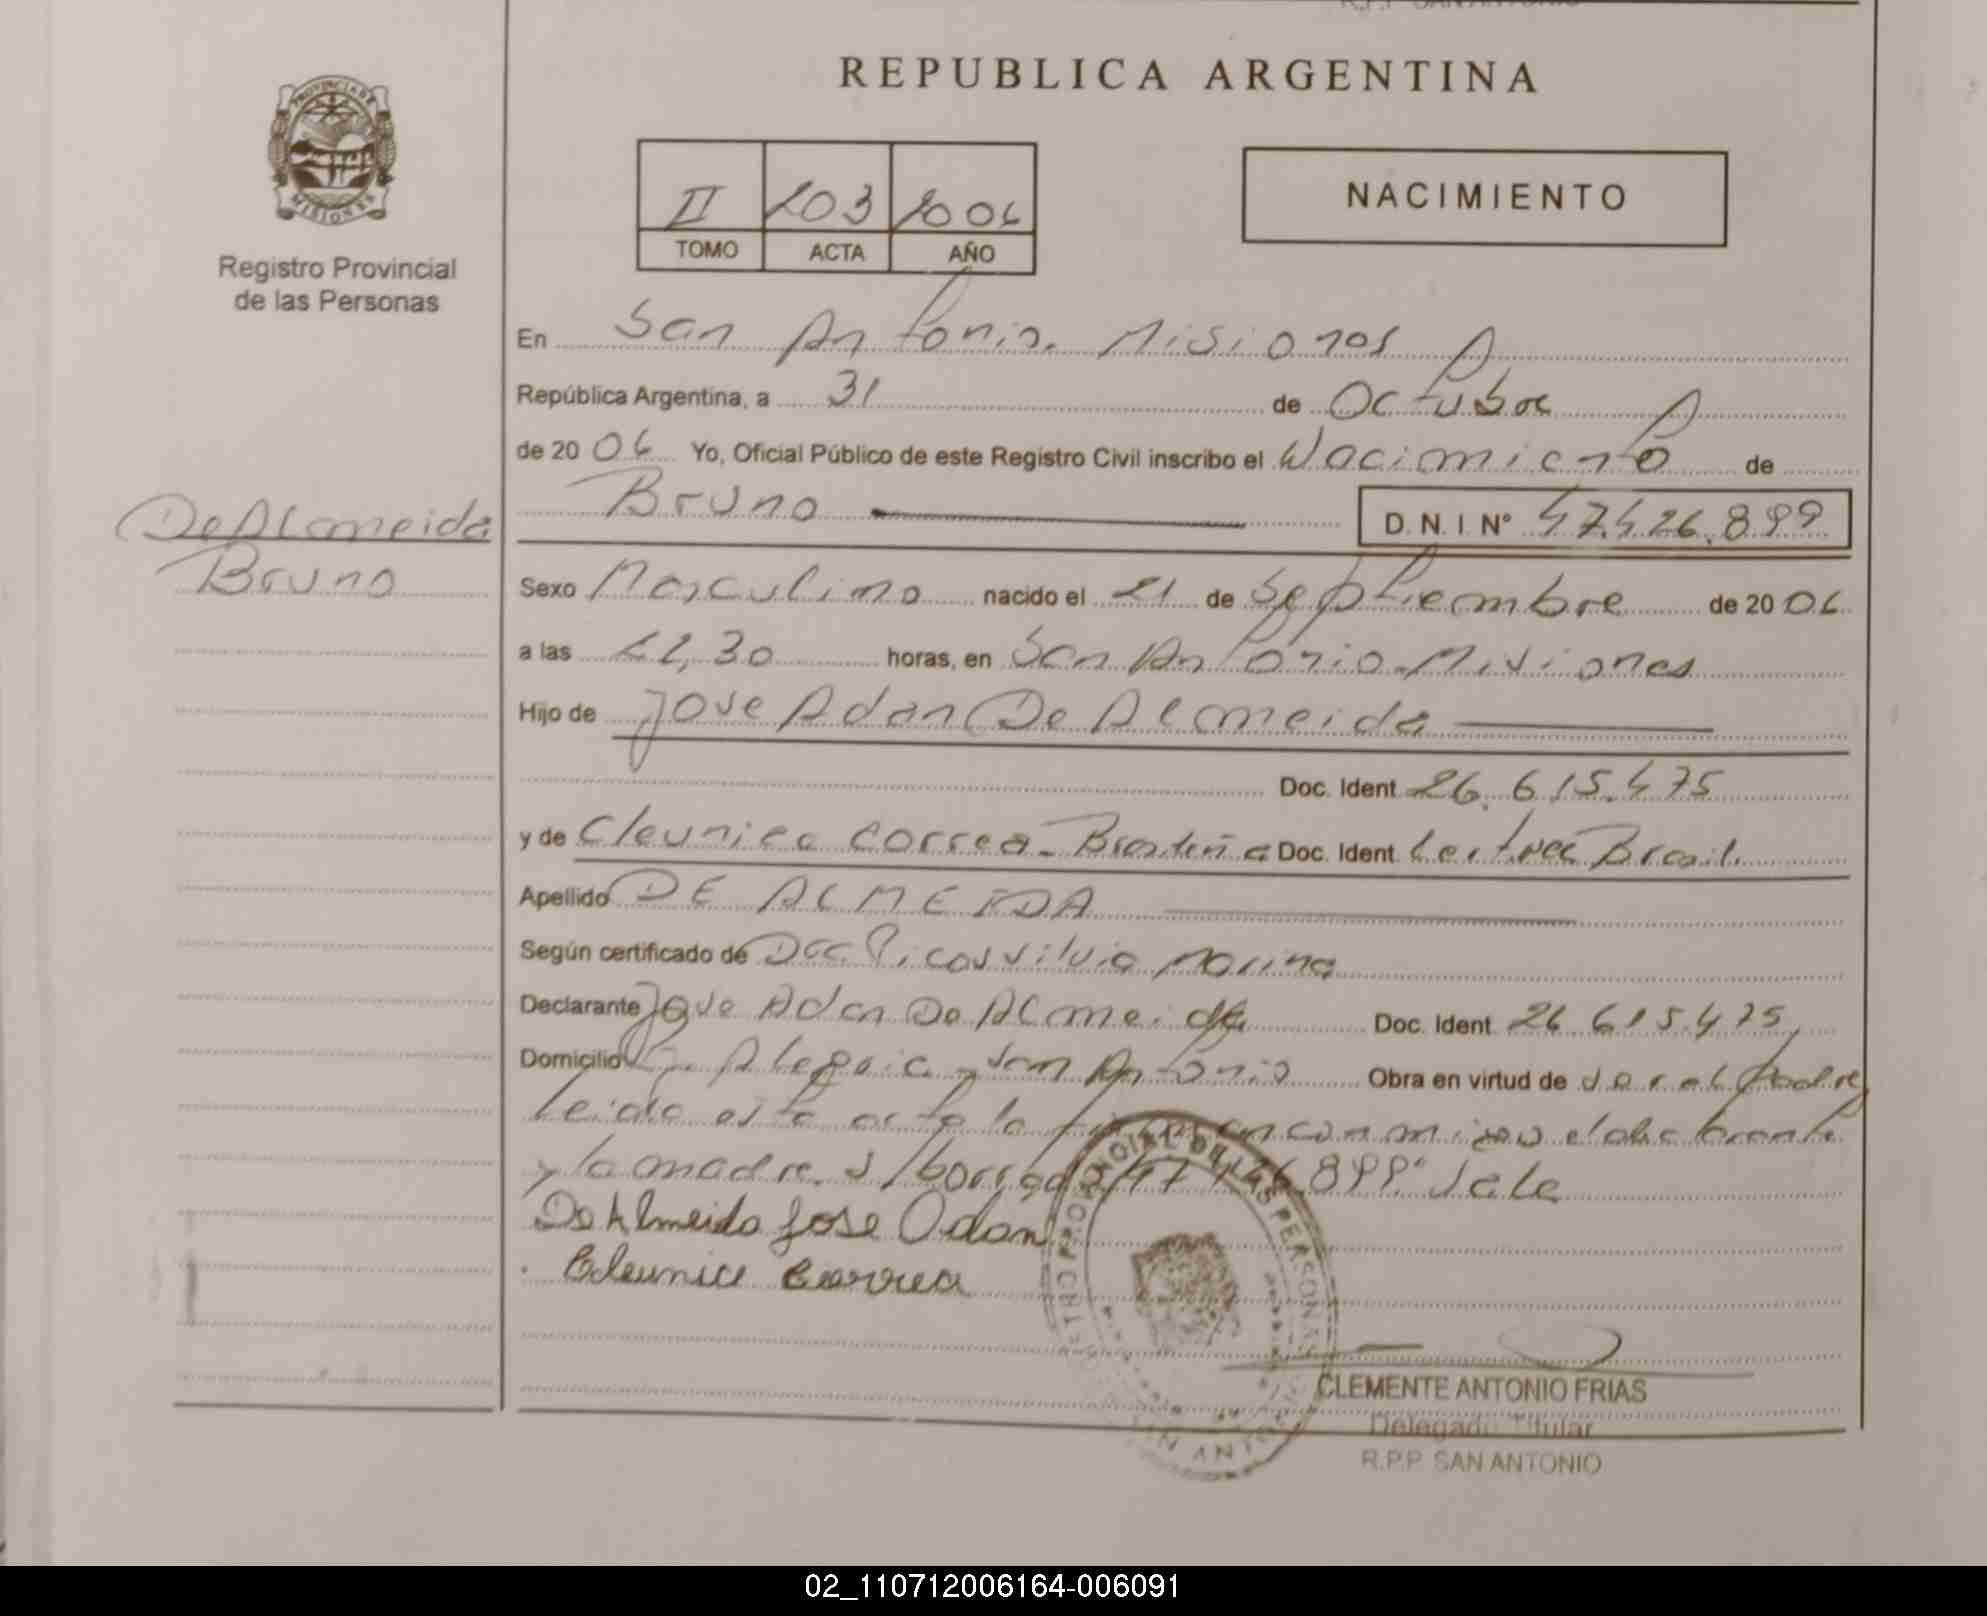 REPUBLICA ARGENTINA
PROVINCIA DE
MISIONES
Registro Provincial
de las Personas
II 203 2006
TOMO ACTA AÑO
NACIMIENTO
En San Antonio. Misiones
República Argentina, a 31 de Octubre
de 20 06 Yo, Oficial Público de este Registro Civil inscribo el Nacimiento de
Bruno D. N. I. N° 47.426.899
De Almeida
Bruno
Sexo Masculino nacido el 21 de Septiembre de 20 06
a las 22,30 horas, en San Antonio. Misiones
Hijo de Jose Adan De Almeida
Doc. Ident 26.615.475
y de Cleunice Correa - Brasileña Doc. Ident Brasil.
Apellido DE ALMEIDA
Según certificado de Silvia Marina
Declarante Jose Adan De Almeida Doc. Ident 26.615.475,
Domicilio Alegria - San Antonio Obra en virtud de ser el padre
Leida esta acta la firman conmigo el declarante
y la madre. S/borrado 47.426.899 Vale
De Almeida Jose Adan
Cleunice Correa
REGISTRO PROVINCIAL DE LAS PERSONAS
SAN ANTONIO
CLEMENTE ANTONIO FRIAS
Delegado Titular
R.P.P SAN ANTONIO
02_110712006164-006091